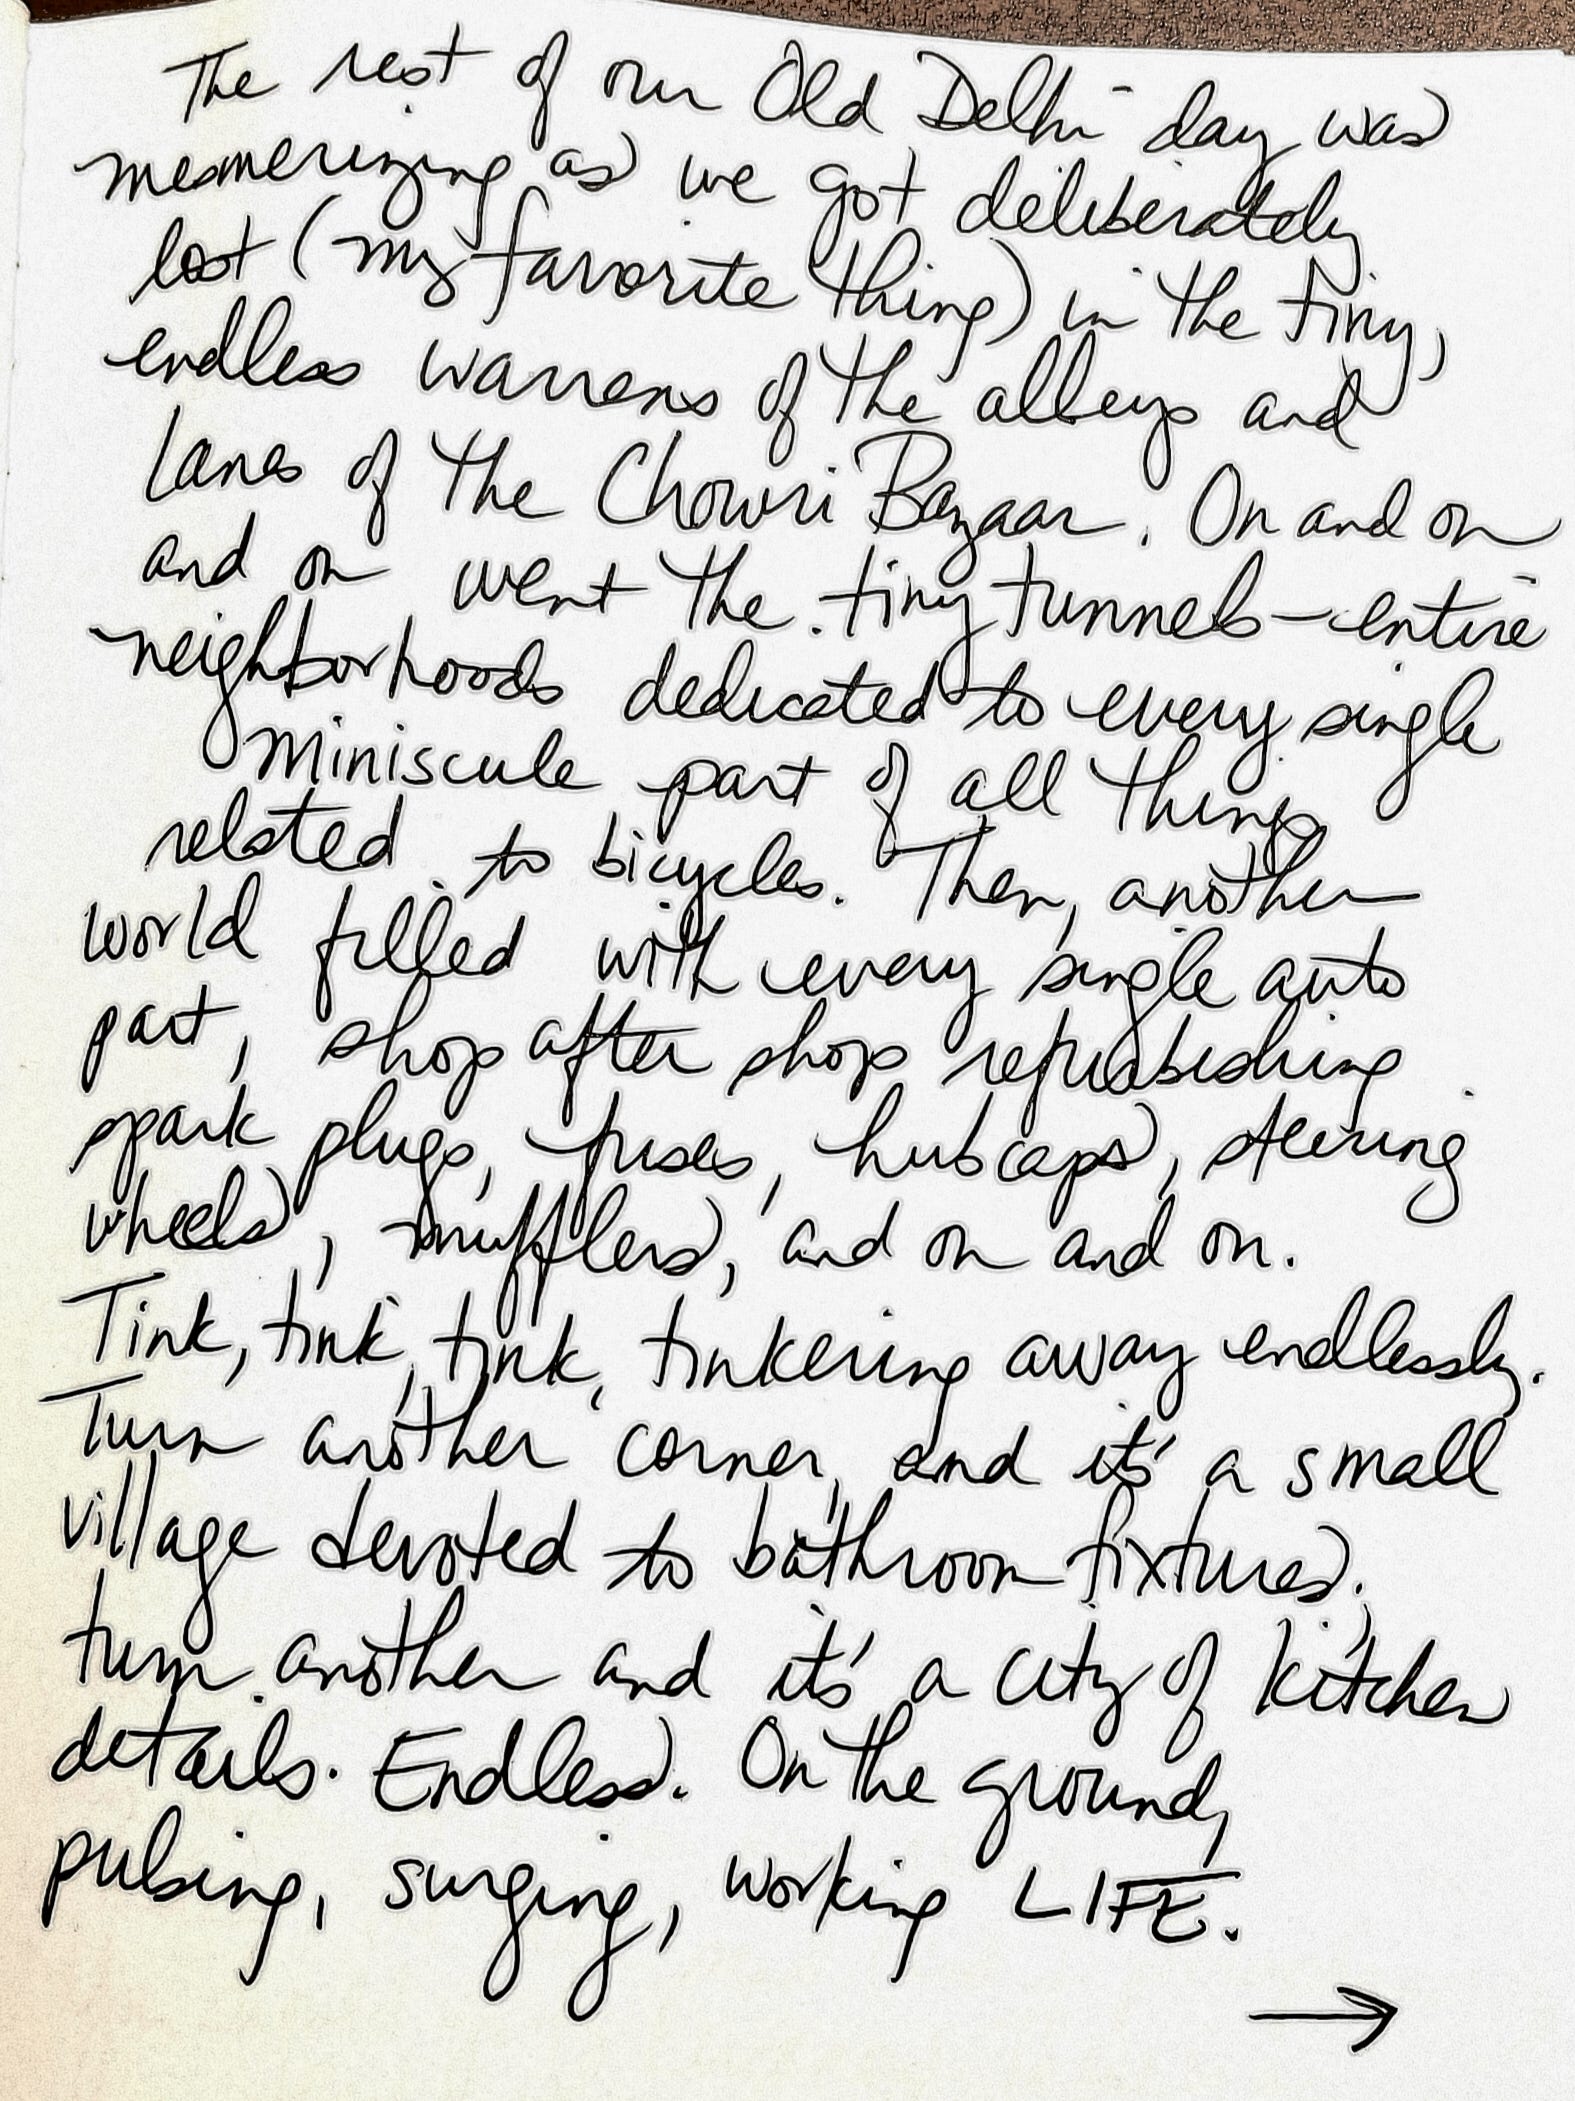 The rest of our Old Delhi day was
mesmerizing as we got deliberately
lost (my favorite thing) in the tiny,
endless warrens of the alleys and
lanes of the Chowri Bazaar. On and on
and on went the tiny tunnels—entire
neighborhoods dedicated to every single
miniscule part of all things
related to bicycles. Then, another
world filled with every single auto
part, shop after shop refurbishing
spark plugs, fuses, hubcaps, steering
wheels, mufflers, and on and on.
Tink, tink, tink, tinkering away endlessly.
Turn another corner, and it's a small
village devoted to bathroom fixtures.
turn another and it's a city of kitchen
details. Endless. On the ground,
pulsing, surging, working LIFE.
→